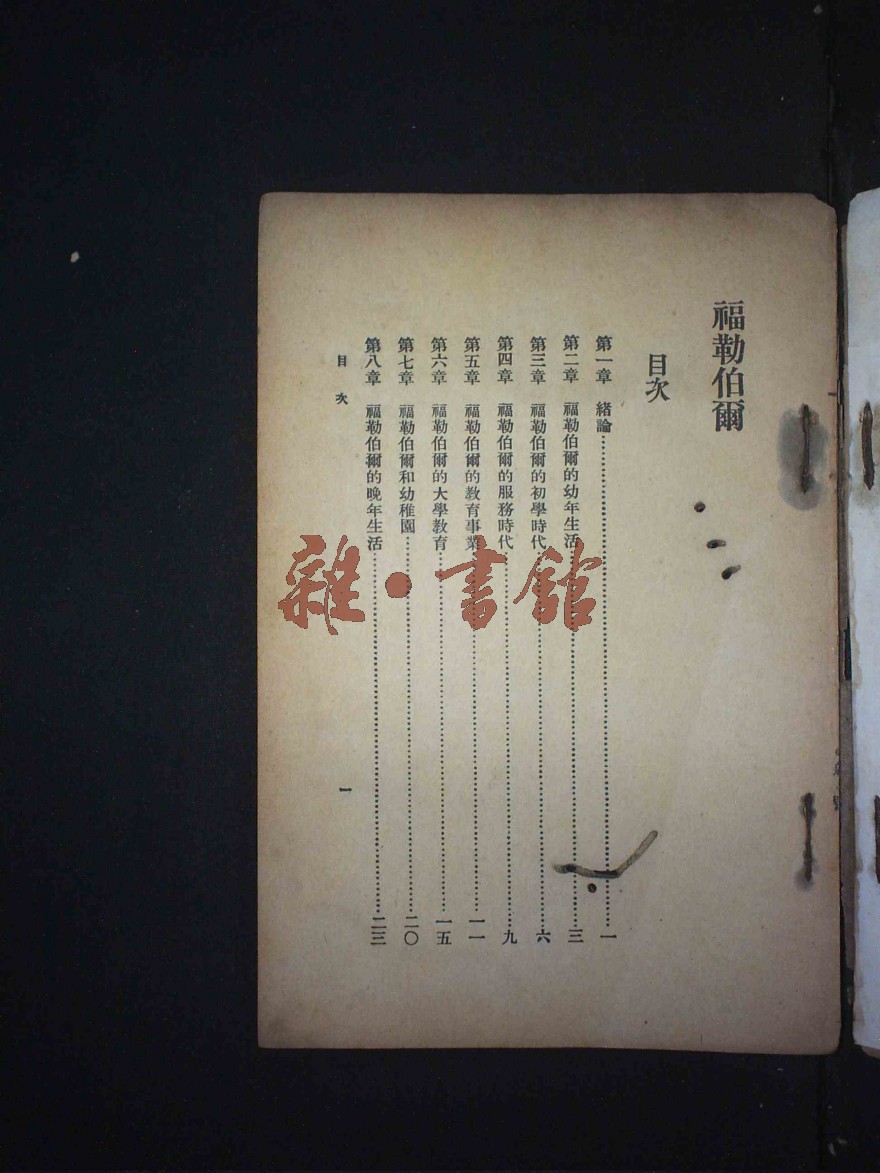 福勒伯爾
目次
第一章 緒論……一
第二章 福勒伯爾的幼年生活……三
第三章 福勒伯爾的初學時代……六
第四章 福勒伯爾的服務時代……九
第五章 福勒伯爾的教育事業……一一
第六章 福勒伯爾的大學教育……一五
第七章 福勒伯爾和幼稚園……二〇
第八章 福勒伯爾的晚年生活……二三
目次 一
雜·書館